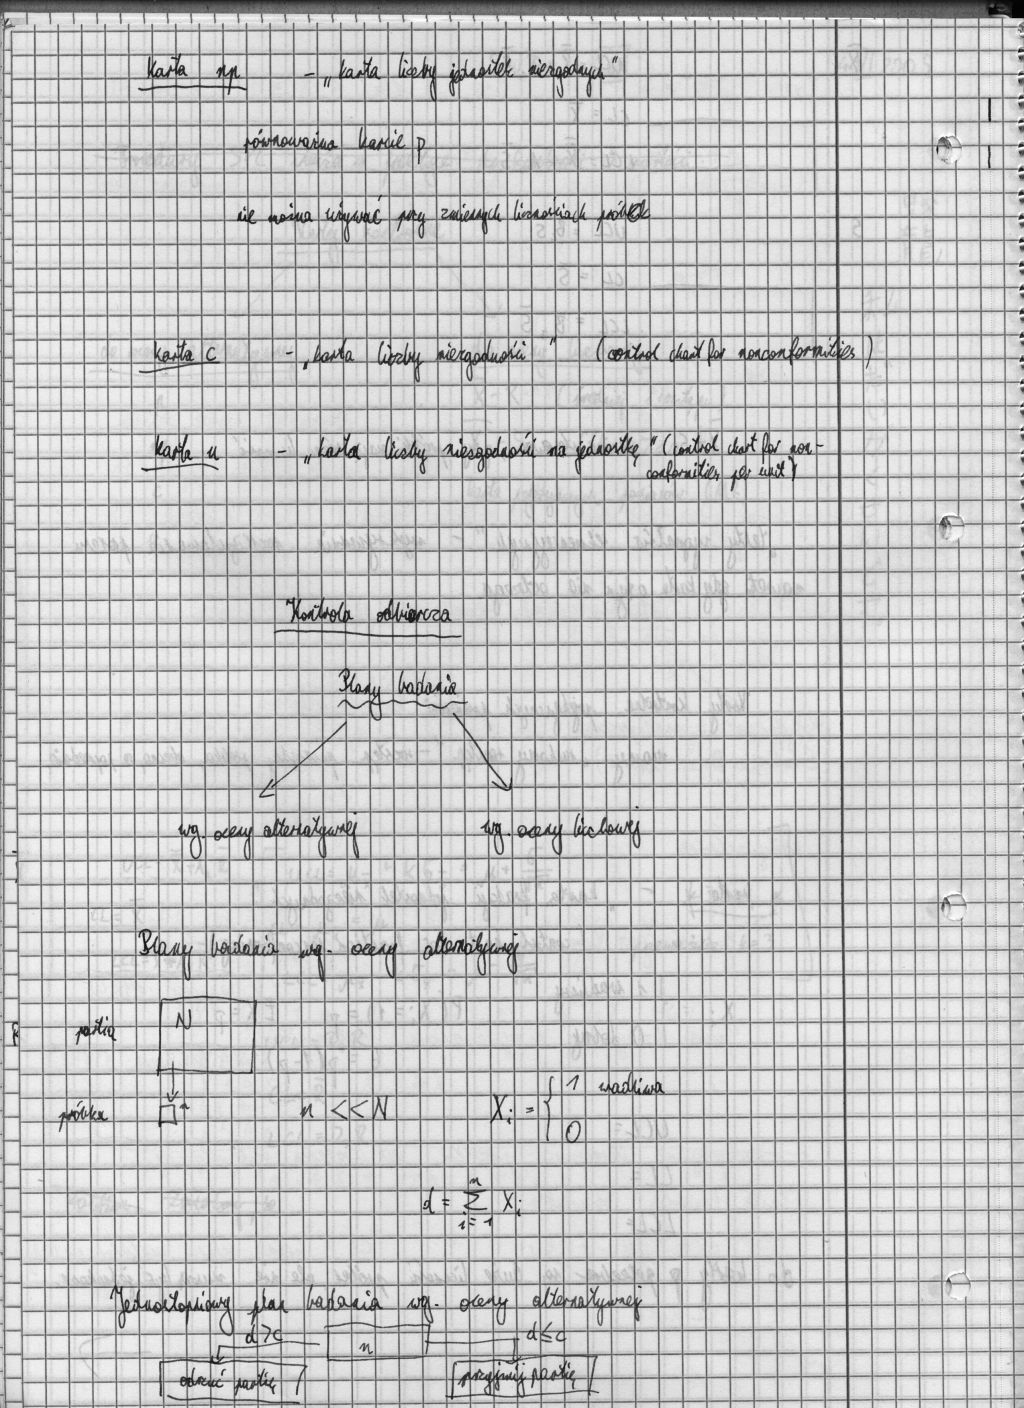 Karta np - „karta liczby jednostek niezgodnych"
równoważna karcie p
nie można używać przy zmiennych licznościach próbek
Karta c - „karta liczby niezgodności" (control chart for nonconformities)
Karta u - „karta liczby niezgodności na jednostkę" (control chart for non-
conformities per unit)
Kontrola odbiorcza
Plany badania
wg. oceny alternatywnej wg. oceny liczbowej
Plany badania wg. oceny alternatywnej
partia N
próbka n n << N X_i = { 1 wadliwa
0
d = \sum_{i=1}^{n} X_i
Jednostopniowy plan badania wg. oceny alternatywnej
d>c n d≤c
odrzuć partię przyjmij partię